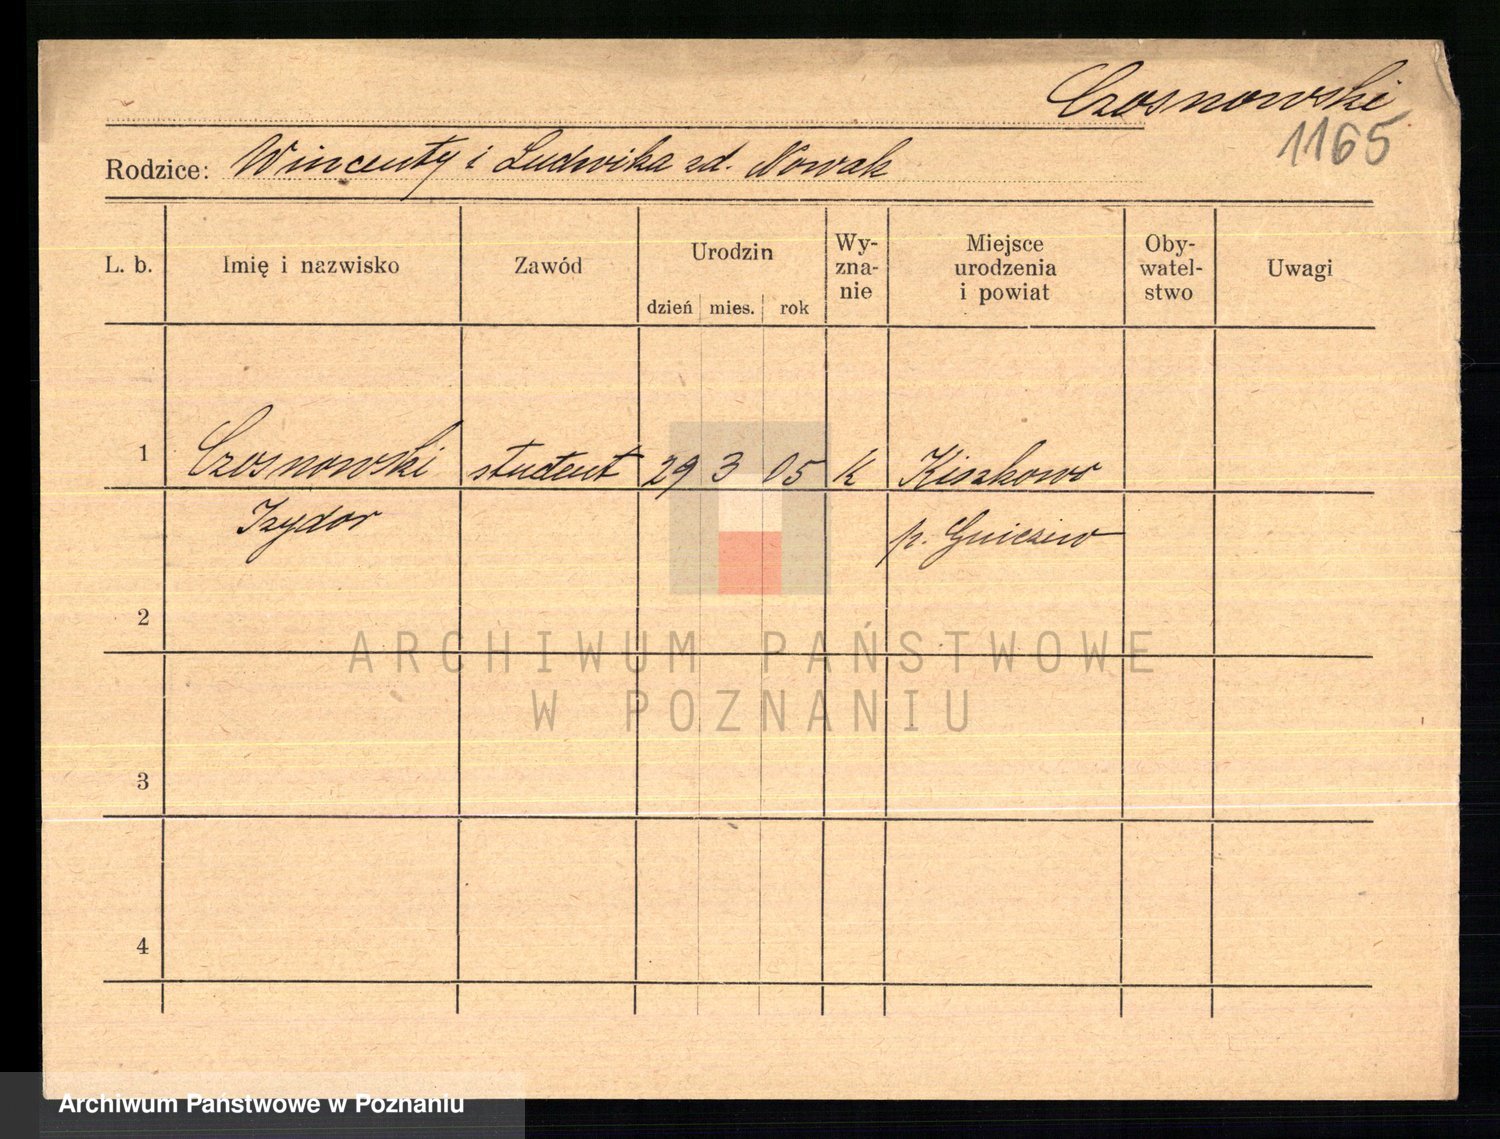 Czosnowski
1165
Rodzice: Wincenty i Ludwika zd. Nowak
L. b. Imię i nazwisko Zawód Urodzin dzień mies. rok Wy-zna-nie Miejsce urodzenia i powiat Oby-watel-stwo Uwagi
1 Czosnowski student 29 3 05 k Kiszkowo
Izydor p. Gniezno
2
ARCHIWUM PAŃSTWOWE
W POZNANIU
3
4
Archiwum Państwowe w Poznaniu